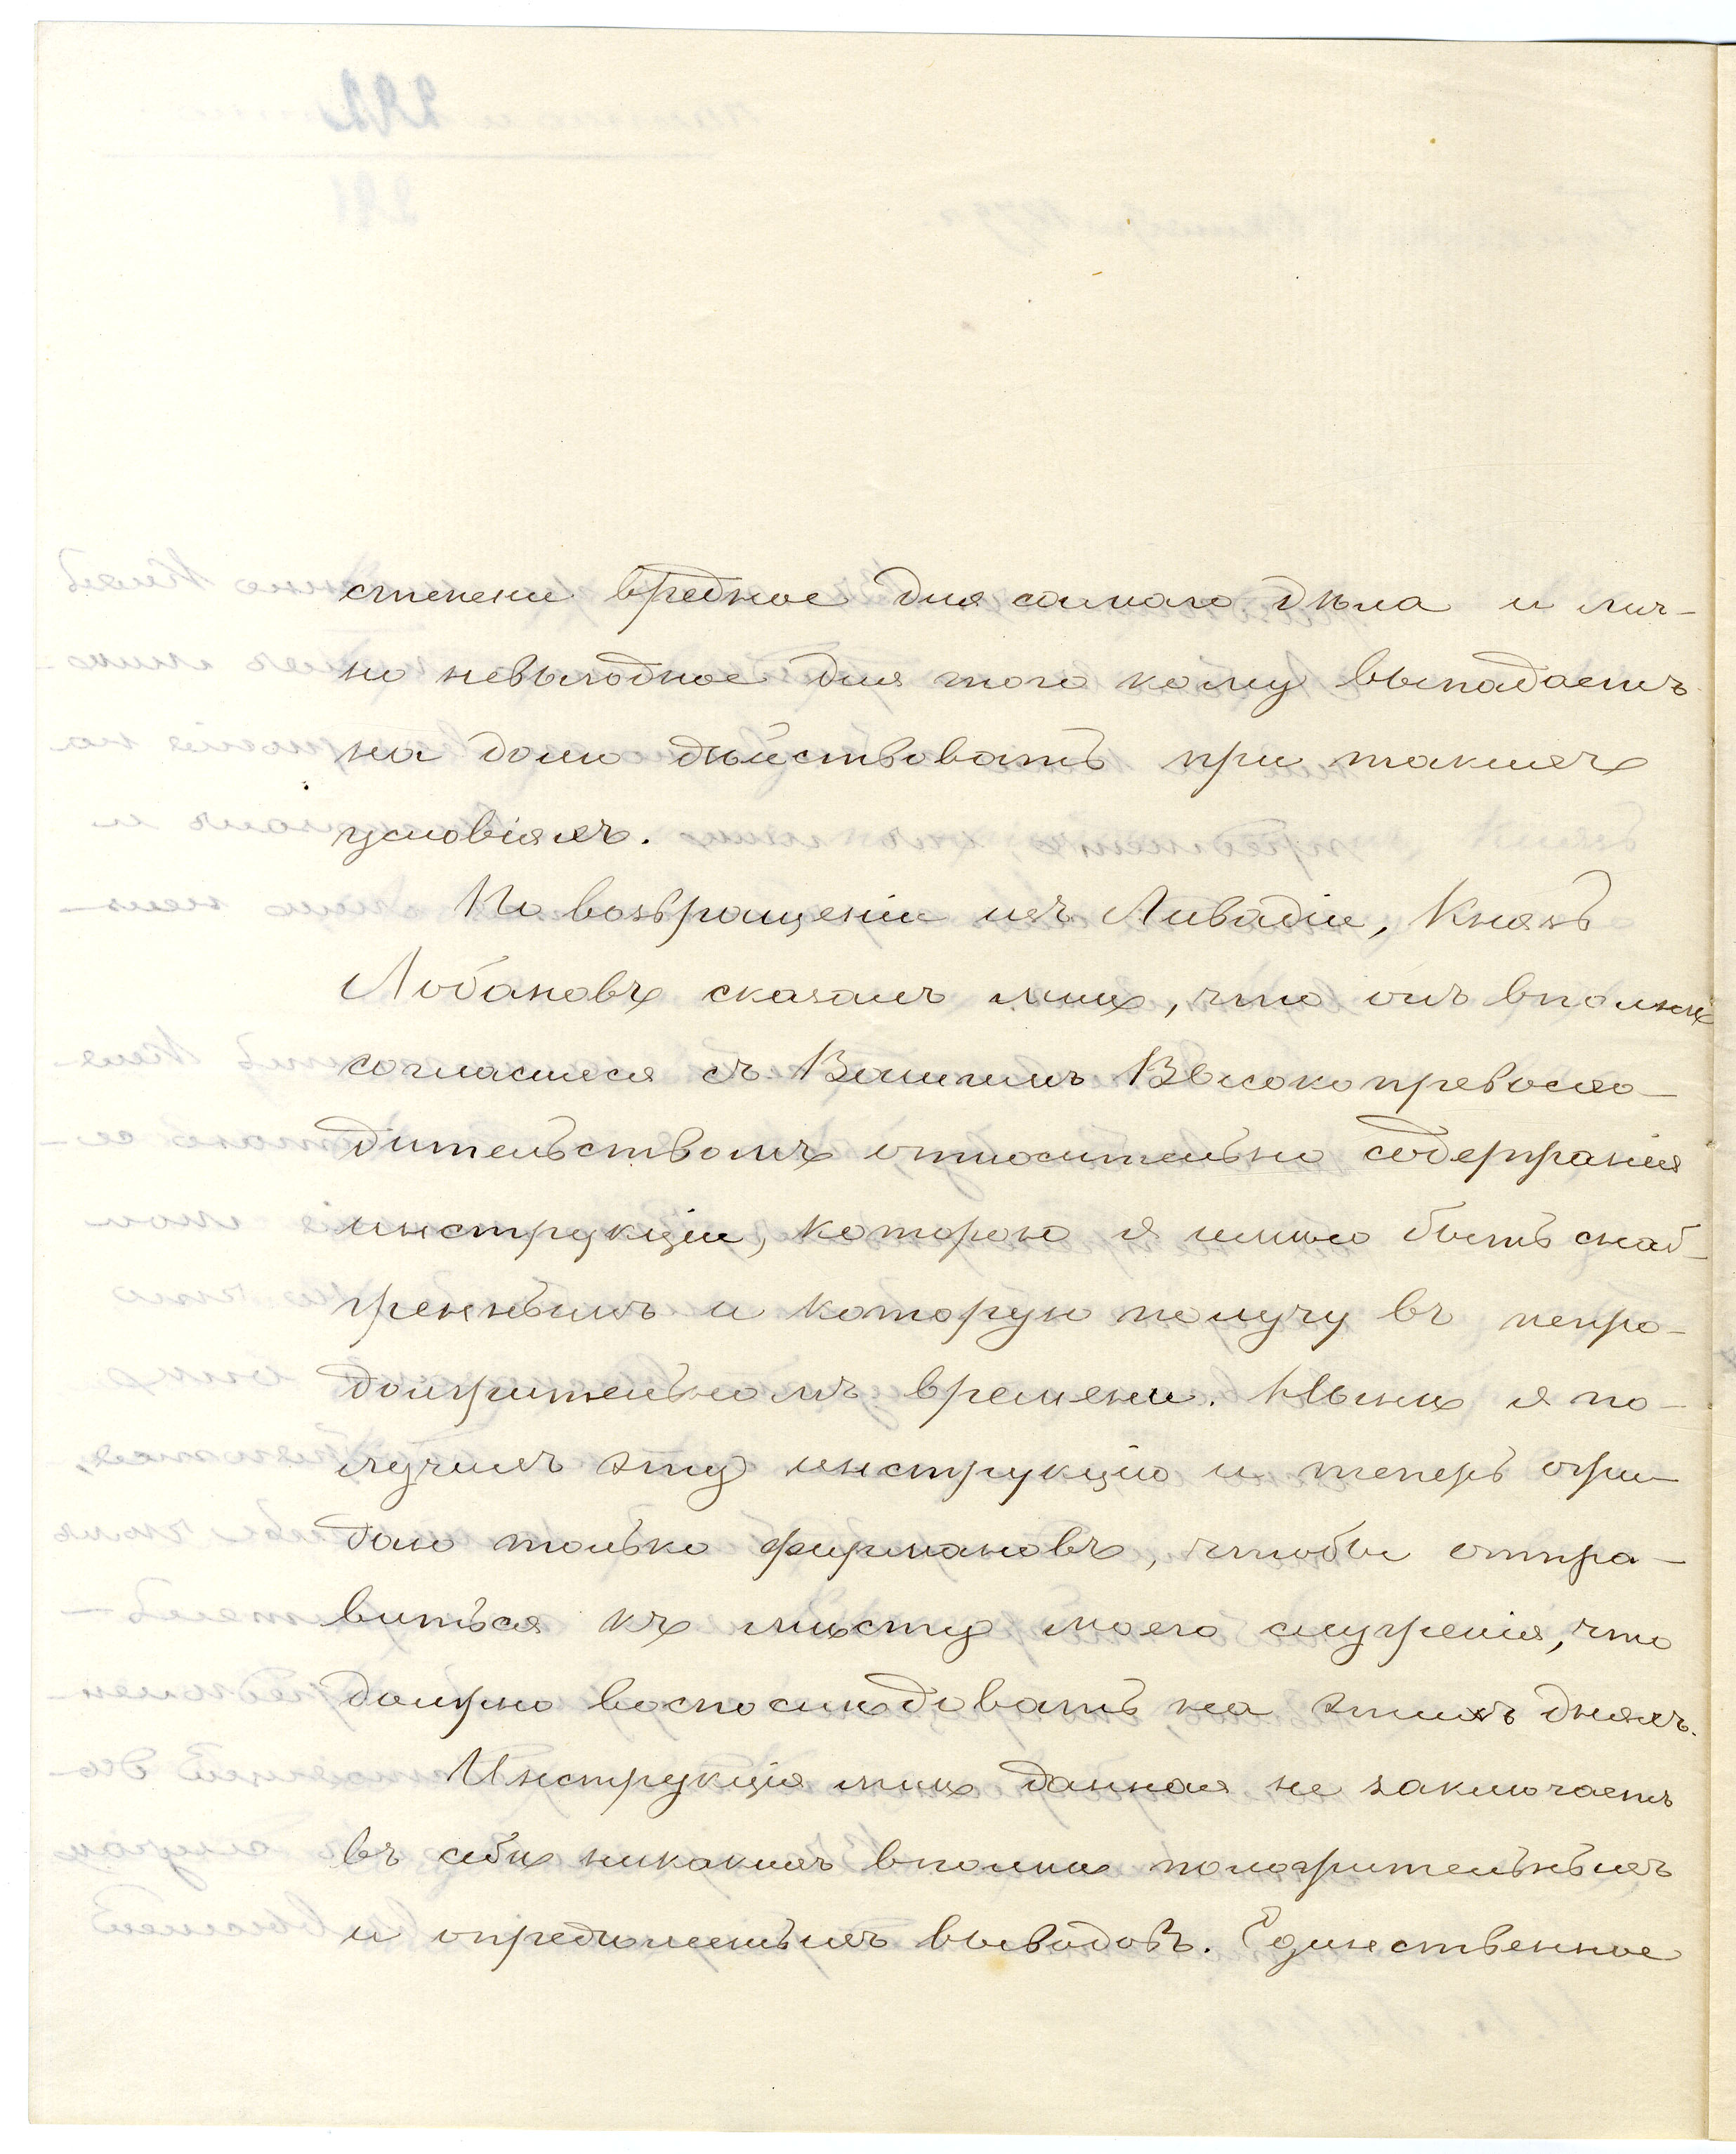 степени вредное для самаго дѣла и лич-
но невыгодное для того кому выпадаетъ
на долю дѣйствовать при такихъ
условіяхъ.
По возвращеніи изъ Ливадіи, Князь
Лобановъ сказалъ мнѣ, что онъ вполнѣ
согласился съ Вашимъ Высокопревосхо-
дительствомъ относительно содержанія
инструкціи, которою я имѣю быть снаб-
женнымъ и которую получу въ непро-
должительномъ времени. Нынѣ я по-
лучилъ эту инструкцію и теперь ожи-
даю только фирмановъ, чтобы отпра-
виться къ мѣсту моего служенія, что
должно воспослѣдовать на этихъ дняхъ.
Инструкція мнѣ данная не заключаетъ
въ себѣ никакихъ вполнѣ положительныхъ
и опредѣленныхъ выводовъ. Единственное